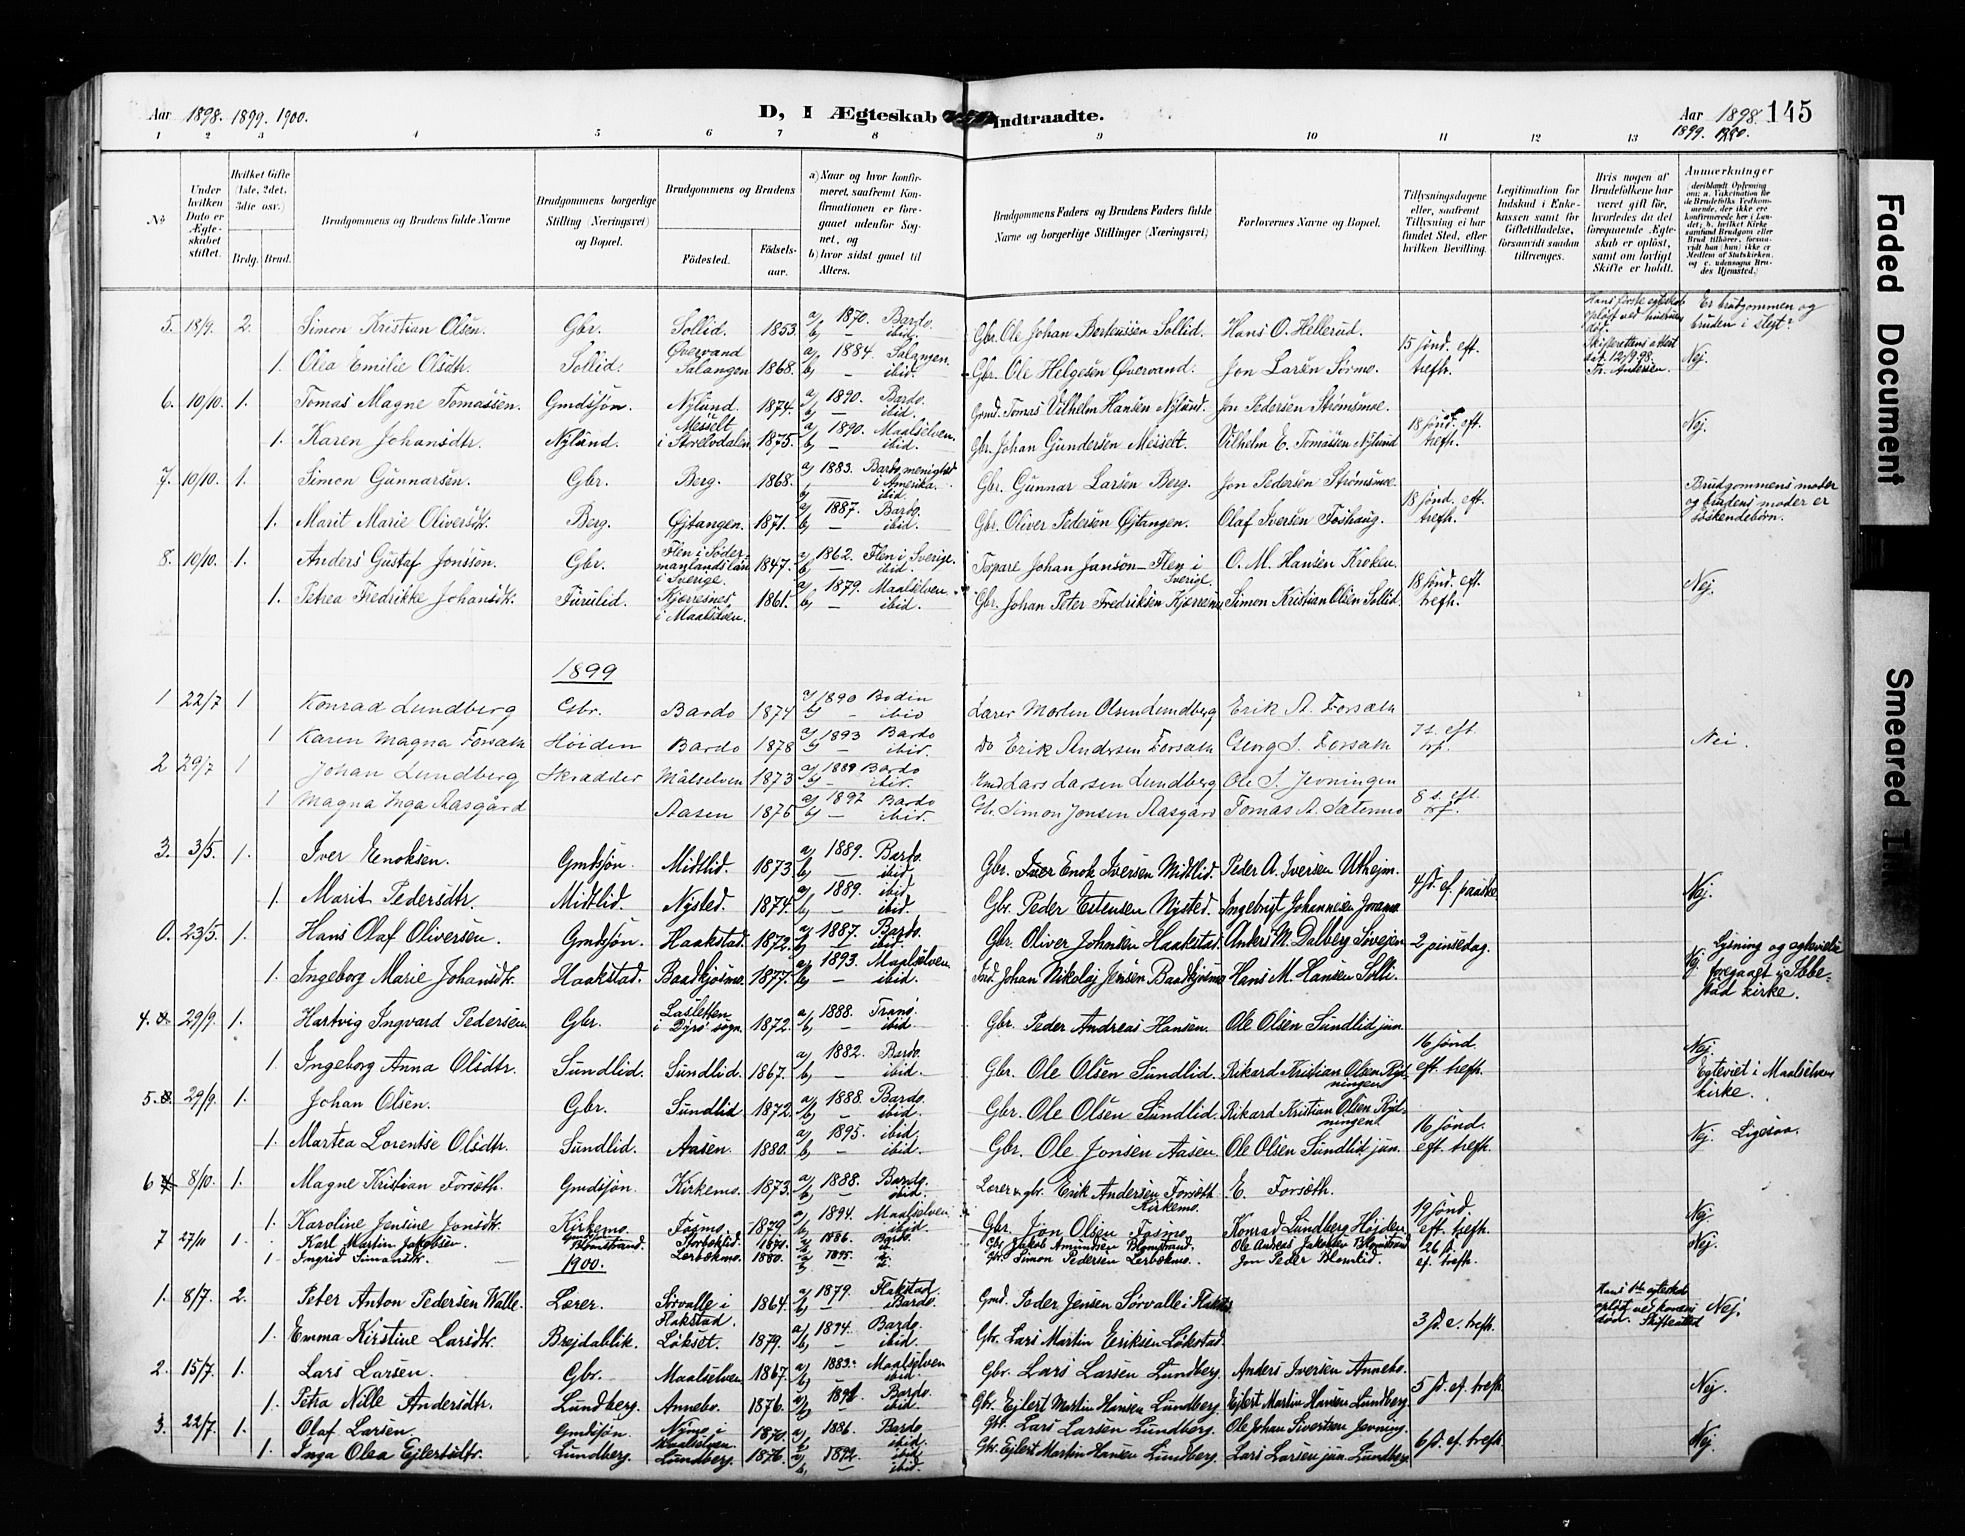 Aar 1898. 1899. 1900.
D, I Ægteskab Indtraadte.
Aar 1898. 145
1899. 1900.
1 2 3 4 5 6 7 8 9 10 11 12 13
№
Under hvilken Dato er Ægteskabet stiftet.
Hvilket Gifte (1ste, 2det, 3die osv.)
Brdg. Brud.
Brudgommens og Brudens fulde Navne
Brudgommens borgerlige Stilling (Næringsvei) og Bopæl.
Brudgommens og Brudens
Fødested. Fødselsaar.
a) Naar og hvor konfirmeret, saafremt Konfirmationen er foregaaet udenfor Sognet, og
b) hvor sidst gaaet til Alters.
Brudgommens Faders og Brudens Faders fulde Navne og borgerlige Stillinger (Næringsvei)
Forlovernes Navne og Bopæl.
Tillysningsdagene eller, saafremt Tillysning ei har fundet Sted, efter hvilken Bevilling.
Legitimation for Indskud i Enkekassen samt for Giftetilladelse, forsaavidt saadan tiltrænges.
Hvis nogen af Brudefolkene har været gift før, hvorledes da det foregaaende Ægteskab er opløst, samt om lovligt Skifte er holdt.
Anmærkninger
5. 18/9. 2. Simon Kristian Olsen. Gbr. Sollid. 1853. a) 1870. Bardo. b) ibid. Gbr. Ole Johan Berteussen Sollid. Hans O. Hellerud. 15 sønd. eft. trefh. Hans første egteskab opløst ved hustruens død. Skifterettens attest dat. 12/9 98. Fr. Andersen. Er brudgommen og bruden i slegt?
1. Olea Emilie Olsdtr. Sollid. Øvervand Salangen 1868. a) 1884. Salangen. b) — ibid. Gbr. Ole Helgesen Øvervand. Jon Larsen Sørmo. Nej.
6. 10/10. 1. Tomas Magne Tomassen. Gmdsjøn. Nylund. 1874. a) 1890. Bardo. b) — ibid. Gmd. Tomas Vilhelm Hansen Nylund. Jon Pedersen Strømsmoe. 18 sønd. eft. trefh. Nej.
1. Karen Johansdtr. Nylund. Messelt i Storelvdalen 1875. a) 1890. Maalselven. b) — ibid. Gbr. Johan Gundersen Messelt. Vilhelm E. Tomassen Nylund
7. 10/10. 1. Simon Gunnarsen. Gbr. Berg. 1868. a) 1883. Bardo menighed i Amerika. b) — ibid. Gbr. Gunnar Larsen Berg. Jon Pedersen Strømsmoe. 18 sønd. eft. trefh. Brudgommens moder og brudens moder er søskendebørn.
1. Marit Marie Oliversdtr. Berg. Øjtangen. 1871. a) 1887. Bardo. b) — ibid. Gbr. Oliver Pedersen Øjtangen. Olaf Iversen Foshaug.
8. 10/10. 1. Anders Gustaf Jonsson. Gbr. Flen i Södermanlands län i Sverige. 1847. a) 1862. Flen i Sverige. b) — ibid. Torpare Johan Janson — Flen i Sverige. O. M. Hansen Kroken. 18 sønd. eft. trefh. Nej.
1. Petrea Fredrikke Johansdtr. Furulid. Kjerresnes i Maalselven. 1861. a) 1879. Maalselven. b) — ibid. Gbr. Johan Peter Fredriksen Kjerresnes Simon Kristian Olsen Sollid.
1899
1 22/7 1 Konrad Lundberg Gbr. Bardo 1874 a) 1890 Bodin b) — ibid Lærer Morten Olsen Lundberg Erik A. Forsæth 7 s. eft. trf. Nei.
1 Karen Magna Forsæth Høiden Bardo 1878 a) 1893 Bardo b) — ibid. do Erik Andersen Forsæth Georg S. Forsæth
2 29/7 1 Johan Lundberg Skrædder Målselven 1873 a) 1889 Bardo b) — ibid. Lars Larsen Lundberg Ole S. Jevningen 8 s. eft. trf.
1 Magna Inga Aasgård Aasen 1876 a) 1892 Bardo b) — ibid. Gbr. Simon Jonsen Aasgård Tomas A. Sætermo
3. 3/5. 1. Iver Enoksen. Gmdsjøn. Midtlid. 1873 a) 1889. Bardo. b) — ibid Gbr. Enok Iversen Midtlid. Peder A. Iversen Utheim. 4 s. ef. paaske Nej.
1. Marit Pedersdtr. Midtlid. Nysted. 1874. a) 1889. ibid b) — ibid. Gbr. Peder Estensen Nysted. Ingebrigt Johannesen
0. 23/5. 1. Hans Olaf Oliversen. Gmdsjøn. Haakstad. 1872. a) 1887. Bardo. b) ibid. Gbr. Oliver Johnsen Haakstad. Anders M. Dalberg Søvejen 2 pinsedag. Nej Lysning og egtevielse foregaaet i Ibbestad kirke.
1. Ingeborg Marie Johansdtr. Haakstad. Baadkjosmo. 1877. a) 1893. Maalselven. b) — ibid. Ind. Johan Nikolaj Jensen Baadkjosmo Hans M. Hansen Solli.
4. 29/9. 1. Hartvig Ingvard Pedersen Gbr. Lasletten i Dyrø sogn. 1872. a) 1888. Tranø. b) — ibid Gbr. Peder Andreas Hansen. Ole Olsen Sundlid jun. 16 sønd. eft. trefh. Nej. Egteviet i Maalselven kirke.
1. Ingeborg Anna Olsdtr. Sundlid. Sundlid. 1867. a) 1882. Bardo. b) — ibid. Gbr. Ole Olsen Sundlid. Rikard Kristian Olsen
5. 29/9. 1. Johan Olsen. Gbr. Sundlid 1872. a) 1888. Bardo. b) — ibid. Gbr. Ole Olsen Sundlid. Rikard Kristian Olsen 16 sønd. eft. trefh. Nej. Ligesaa.
1. Martea Lorentse Olsdtr. Sundlid. Aasen. 1880. a) 1895. ibid b) — ibid. Gbr. Ole Jonsen Aasen. Ole Olsen Sundlid jun.
6 8/10. 1. Magne Kristian Forseth. Gmdsjøn. Kirkemo. 1873. a) 1888. Bardo. b) — ibid. Lærer & gbr. Erik Andersen Forseth Kirkemo. E. Forseth. 19 sønd. eft. trefh. Nej.
1. Karoline Jensine Jonsdtr. Kirkemo. Fosmo. 1879. a) 1894. Maalselven b) — ibid. Gbr. Jon Olsen Fosmo. Konrad Lundberg Højden
7 27/11 1. Karl Martin Jakobsen. Gmdsjøn Blomstrand. Storboklid. 1871. a) 1886. Bardo. Gbr. Jakob Amundsen Blomstrand. Ole Andreas Jakobsen Blomstrand 26 s. ef. trefh. Nej.
1. Ingrid Simonsdtr. Lerbækmo. 1880. a) 1895. Gbr. Simon Pedersen Lerbækmo. Jon Peder Blomlid.
1900.
1. 8/7. 2. Peter Anton Pedersen Walle. Lærer. Sørvalle i Flakstad. 1864. a) 1879. Flakstad. b) — Bardo. Gmd. Peder Jensen Sørvalle i Flakstad. 3 s. e. trefh. Hans 1ste egteskab opløst ved konens død. Skifteattest Nej.
1. Emma Kirstine Larsdtr. Brejdablik. Løkset. 1879. a) 1894. Bardo. b) — ibid. Gbr. Lars Martin Eriksen Løkstad.
2. 15/7. 1. Lars Larsen. Gbr. Maalselven 1867. a) 1883. Maalselven b) ibid. Gbr. Lars Larsen Lundberg. Anders Iversen Annebo. 5 s. ef. trefh. Nej.
1. Petra Nille Andersdtr. Lundberg. Annebo. 1876. a) 1891. Bardo. b) — ibid. Gbr. Ejlert Martin Hansen Lundberg. Ejlert Martin Hansen Lundberg.
3. 22/7. 1. Olaf Larsen. Gmdsjøn. Nymo i Maalselven 1870. a) 1886. Bardo. b) — ibid. Gbr. Lars Larsen Lundberg. Ole Johan Sivertsen Jevning. 6 s. ef. trefh. Nej.
1. Inga Olea Ejlertsdtr. Lundberg. Lundberg. 1876. a) 1892. ibid b) — ibid. Gbr. Ejlert Martin Hansen Lundberg. Lars Larsen jun. Lundberg.
Faded Document
Smeared Ink